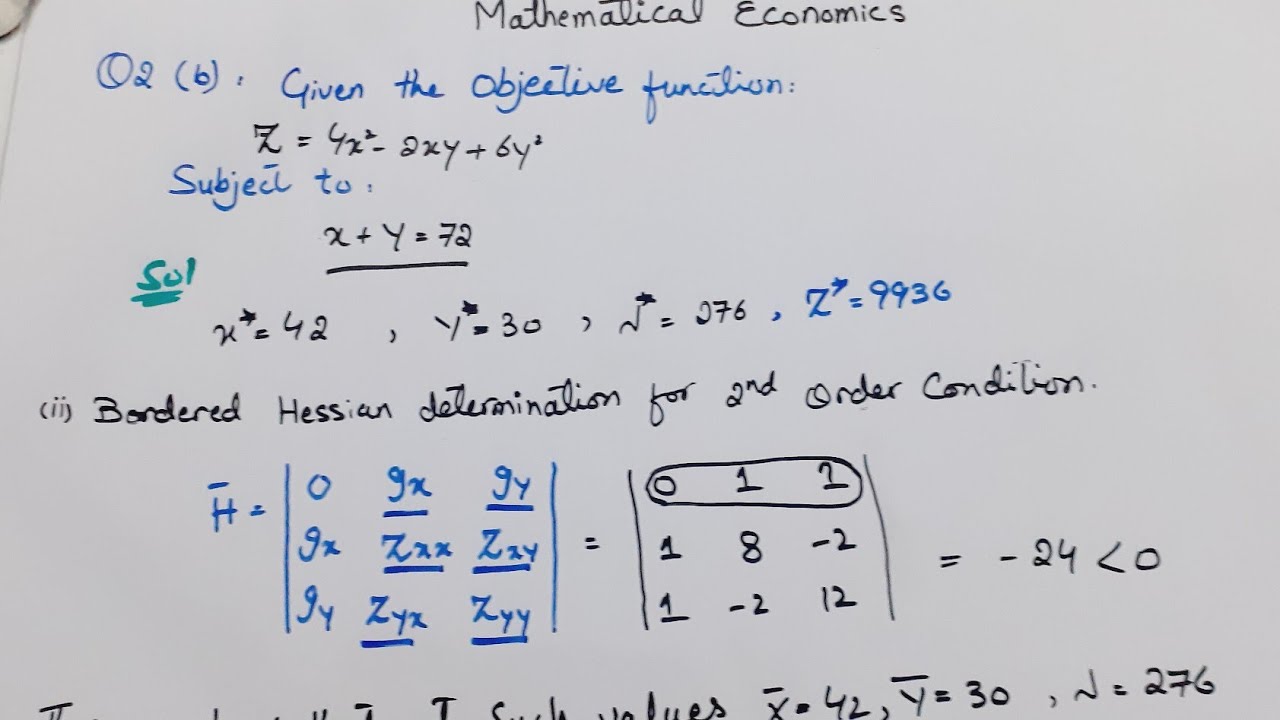 Mathematical Economics
Q2 (b). Given the Objective function:
Z = 4x² - 2xy + 6y²
Subject to:
x + y = 72
Sol
x* = 42 , y* = 30 , λ* = 276 , Z* = 9936
(ii) Bordered Hessian determination for 2nd Order Condition.
H̄ = | 0 gx gy | = | 0 1 1 |
| gx Zxx Zxy | = | 1 8 -2 | = -24 < 0
| gy Zyx Zyy | | 1 -2 12 |
such values x̄ = 42, ȳ = 30 , λ = 276